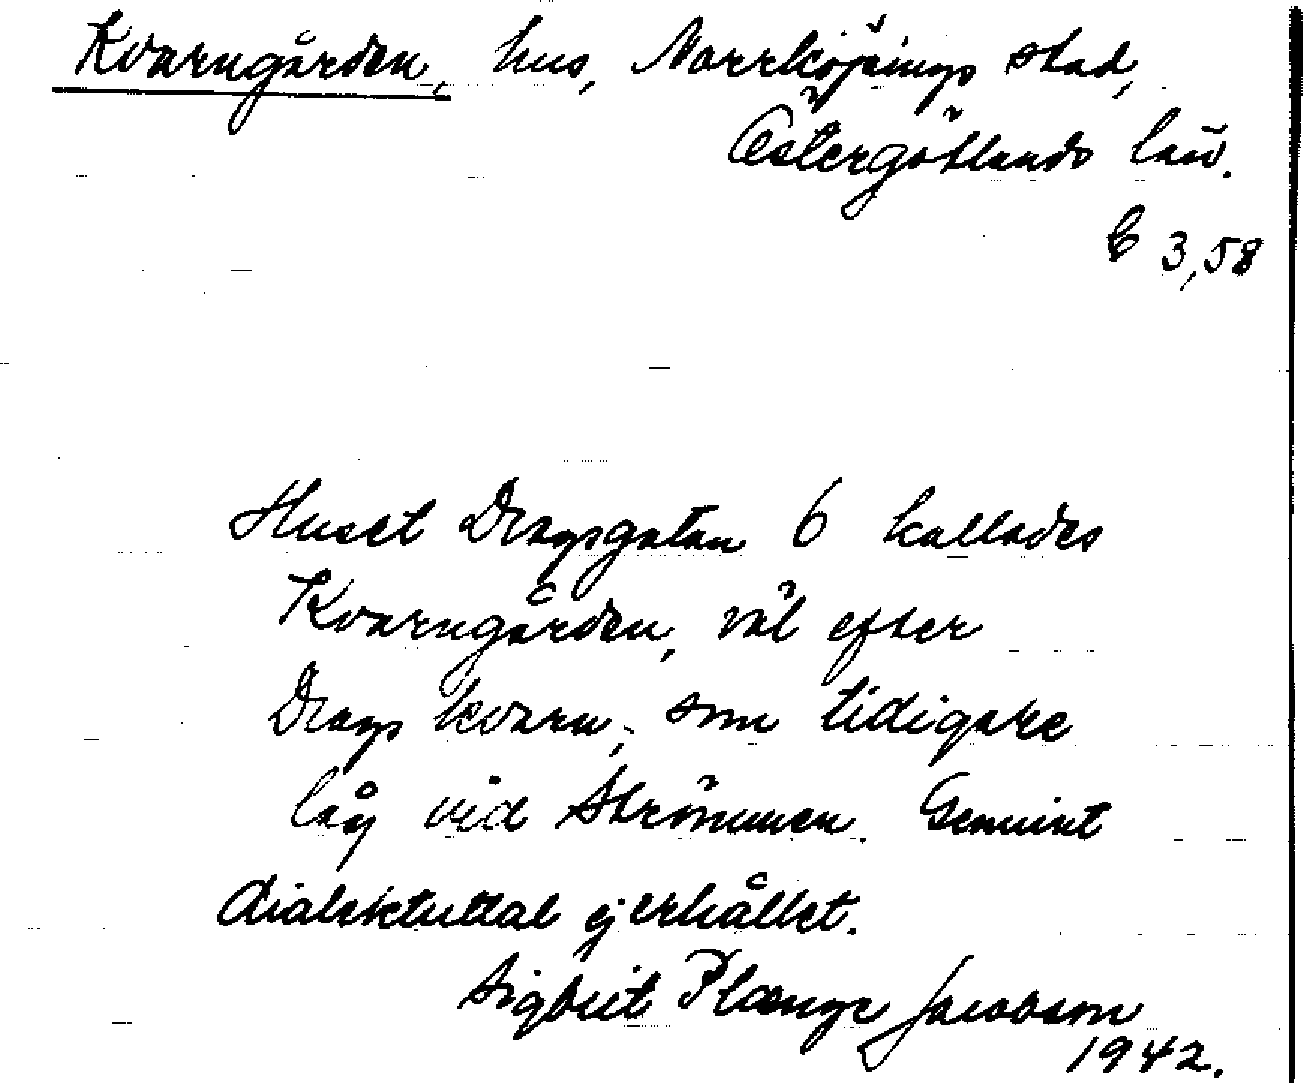 Kvarngården, hus, Norrköpings stad,
Östergötlands län.
B 3,58
Huset Dragsgatan 6 kallades
Kvarngården, väl efter
Drags kvarn, som tidigare
låg vid Strömmen. Genuint
dialektuttal ej erhållet.
Sigbrit Plænge Jacobson
1942.